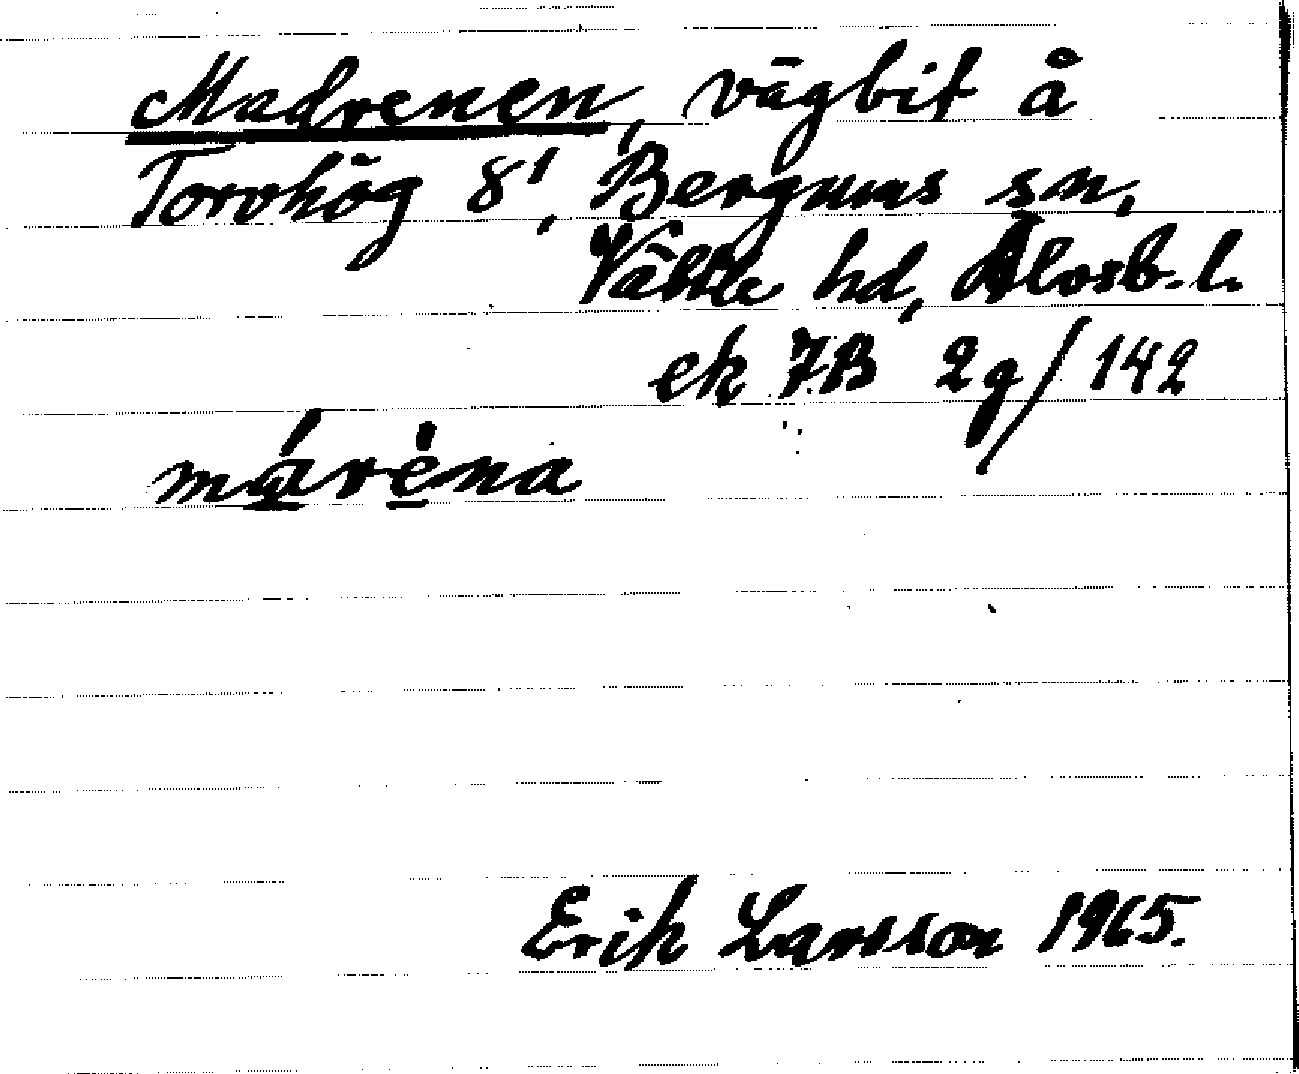 Madrenen, vägbit å
Torvhög 8¹, Bergums sn,
Vättle hd, Älvsb. l.
ek 7B 2g/142
máréna
Erik Larsson 1965.